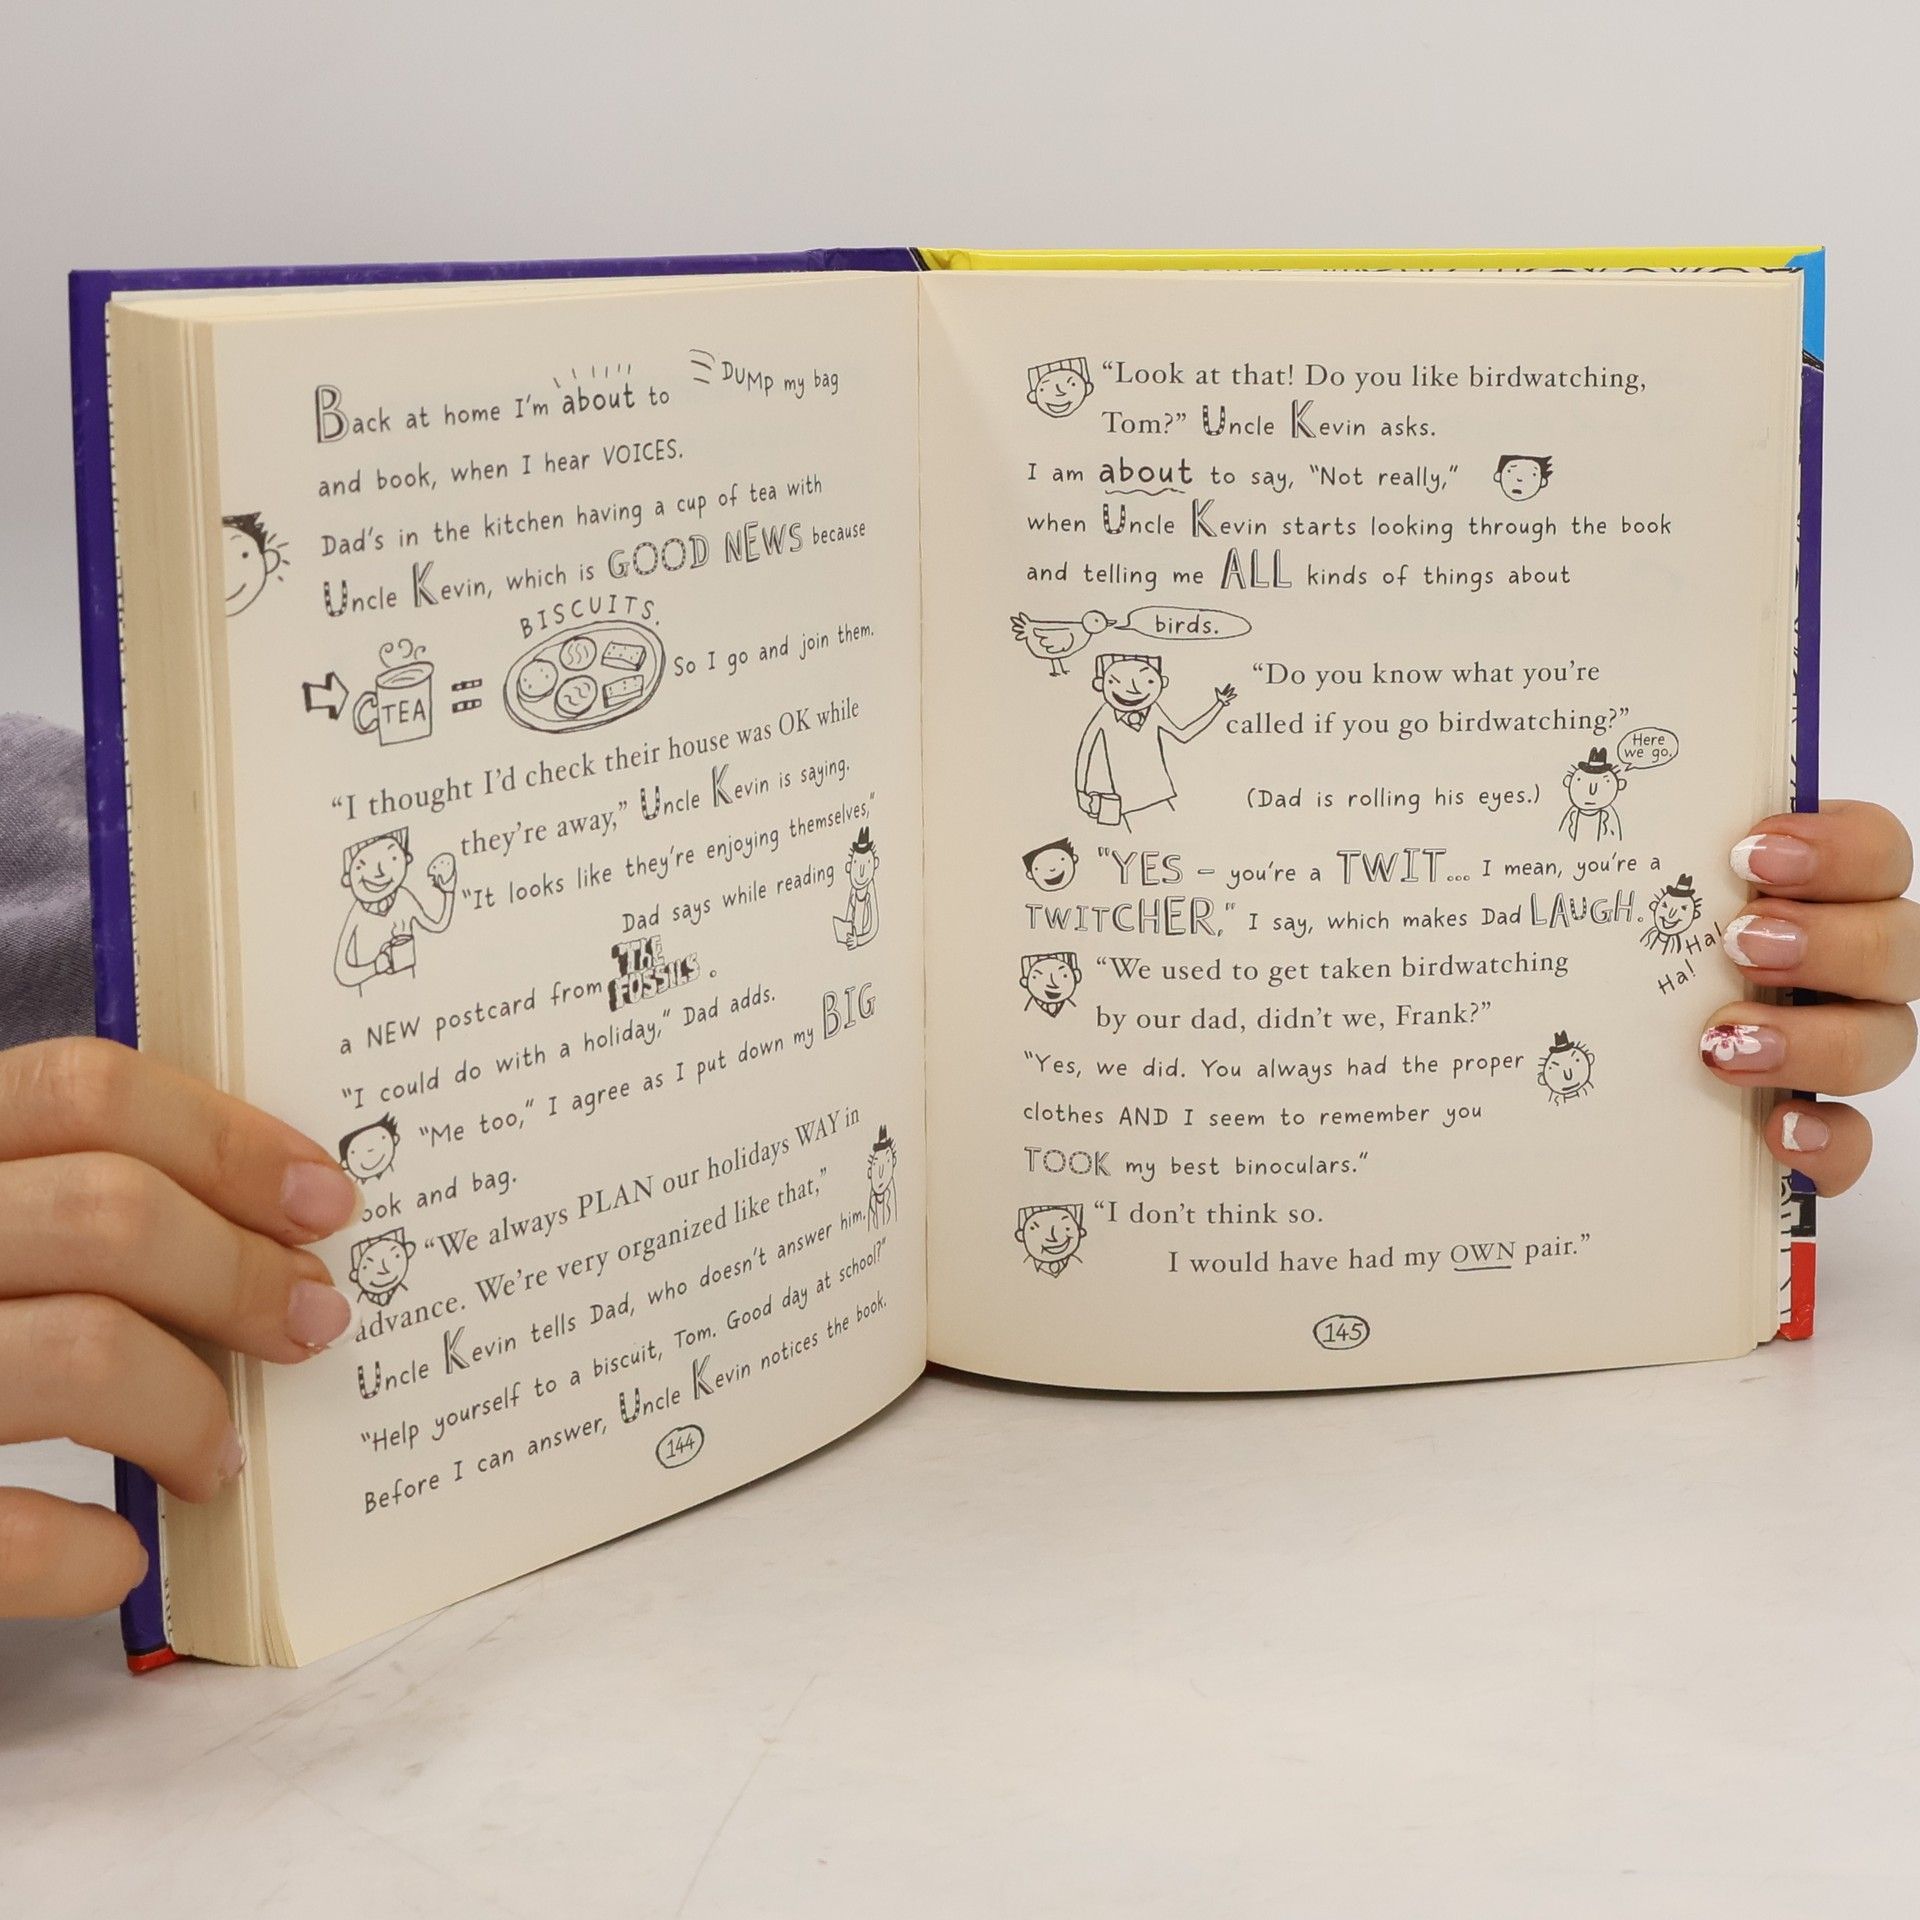 Back at home I'm about to DUMP my bag
and book, when I hear VOICES.
Dad's in the kitchen having a cup of tea with
Uncle Kevin, which is GOOD NEWS because
BISCUITS.
TEA = So I go and join them.
"I thought I'd check their house was OK while
they're away," Uncle Kevin is saying.
"It looks like they're enjoying themselves,"
Dad says while reading
a NEW postcard from THE FOSSILS.
"I could do with a holiday," Dad adds.
"Me too," I agree as I put down my BIG
ook and bag.
"We always PLAN our holidays WAY in
advance. We're very organized like that,"
Uncle Kevin tells Dad, who doesn't answer him.
"Help yourself to a biscuit, Tom. Good day at school?"
Before I can answer, Uncle Kevin notices the book.
144
"Look at that! Do you like birdwatching,
Tom?" Uncle Kevin asks.
I am about to say, "Not really,"
when Uncle Kevin starts looking through the book
and telling me ALL kinds of things about
birds.
"Do you know what you're
called if you go birdwatching?"
Here
we go.
(Dad is rolling his eyes.)
"YES – you're a TWIT... I mean, you're a
TWITCHER," I say, which makes Dad LAUGH.
Ha!
Ha!
"We used to get taken birdwatching
by our dad, didn't we, Frank?"
"Yes, we did. You always had the proper
clothes AND I seem to remember you
TOOK my best binoculars."
"I don't think so.
I would have had my OWN pair."
145